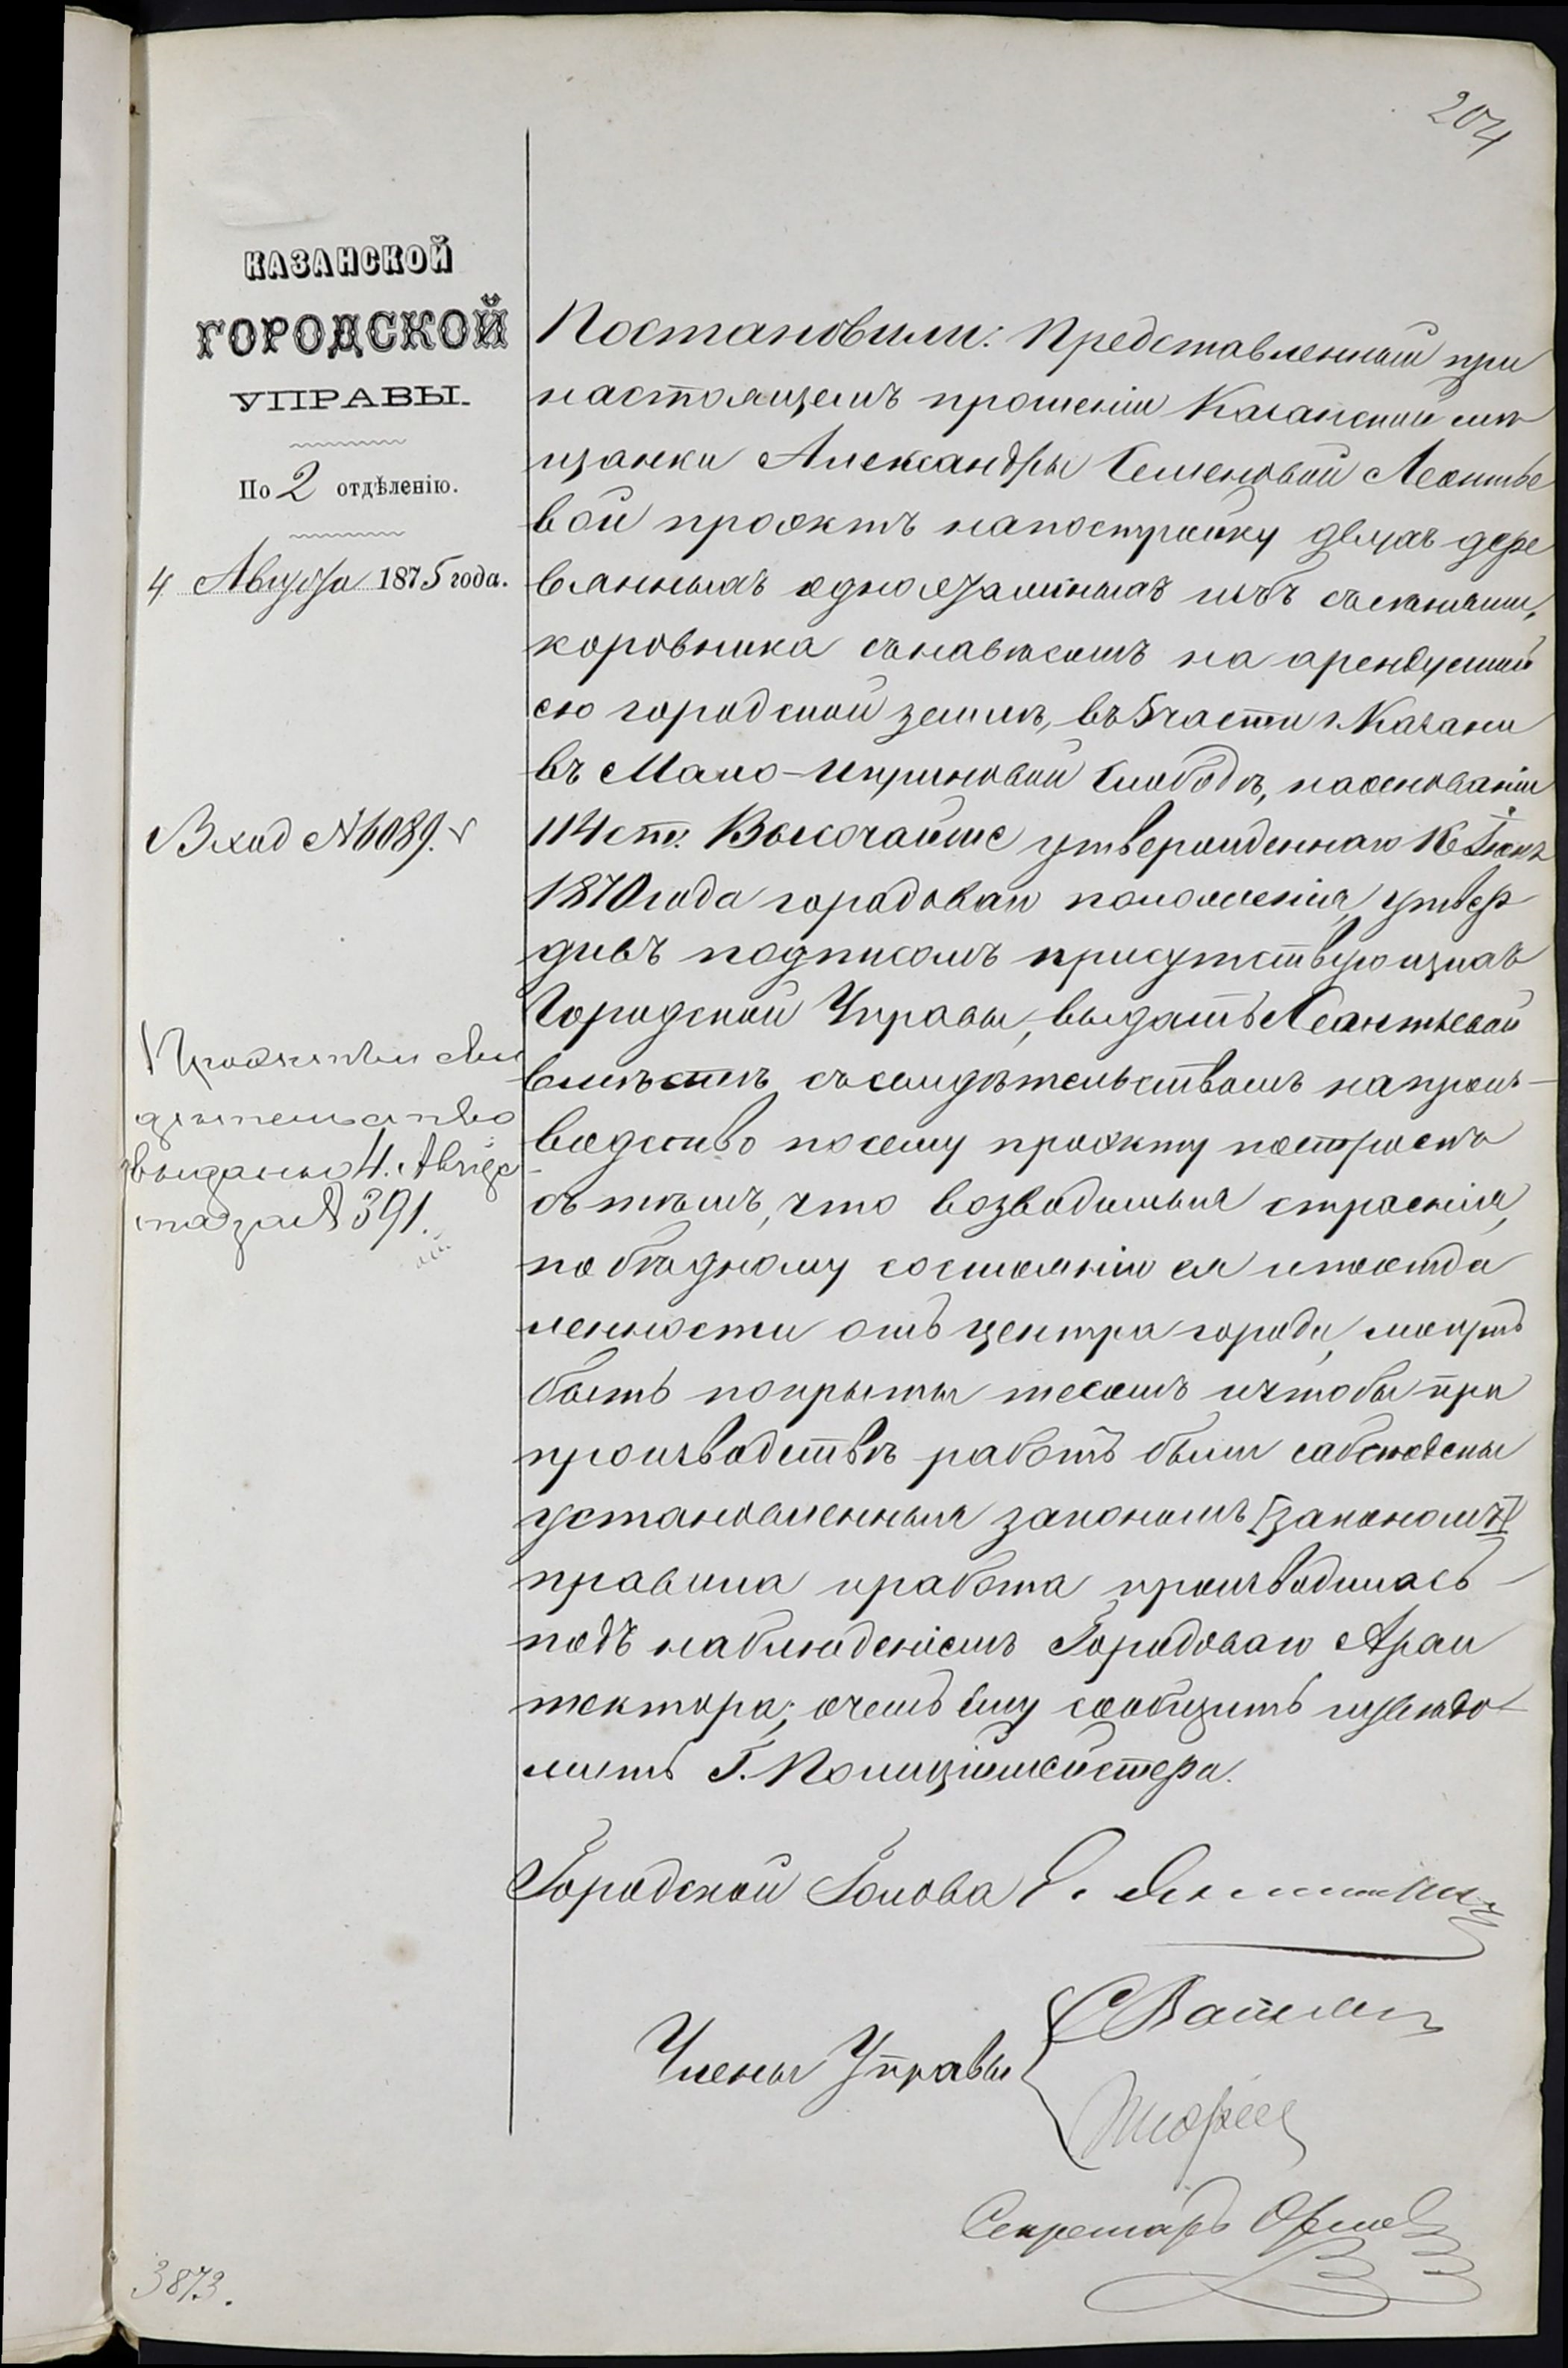 204
КАЗАНСКОЙ
ГОРОДСКОЙ
УПРАВЫ.
По 2 отдѣленію.
4 Августа 1875 года.
Вход № 6089.
Проэктъ и сви
дѣтельство
выданы 4. Авгус
та за № 391.
Постановили: Представленный при
настоящемъ прошеніи Казанской мѣ
щанки Александры Семеновой Леонтье
вой проэктъ на постройку двухъ дере
вянныхъ одноэтажныхъ избъ съ сѣнями,
коровника съ навѣсомъ на арендуемой
ею городской землѣ, въ 5 части г. Казани
въ Мало-Игумновой Слободѣ, на основаніи
114 ст. Высочайше утвержденнаго 16 Іюня
1870 года городоваго положенія, утвер
дивъ подписомъ присутствующихъ
Городской Управы, выдать Леонтьевой
вмѣстѣ съ свидѣтельствомъ на произ-
водство по сему проэкту построекъ
съ тѣмъ, что возводимыя строенія,
по бѣдному состоянію ея и по отда
ленности отъ центра города, могутъ
быть покрыты тесомъ и чтобы при
производствѣ работъ были соблюдены
установленныя закономъ [закономъ]
правила и работа производилась
подъ наблюденіемъ Городоваго Архи
тектора; о чемъ ему сообщить и увѣдо
мить Г. Полиціймейстера.
Городской Голова Э. Янишевскій
Члены Управы
Секретарь Орлов
3873.